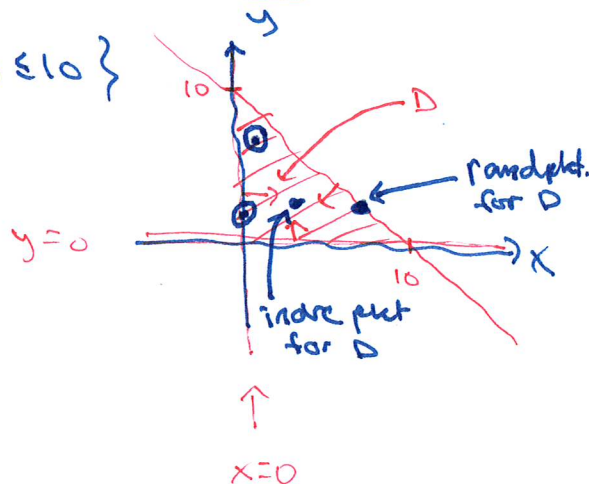 y
≤10 }
10
D
randpkt.
for D
y=0
x
10
indre pkt
for D
x=0